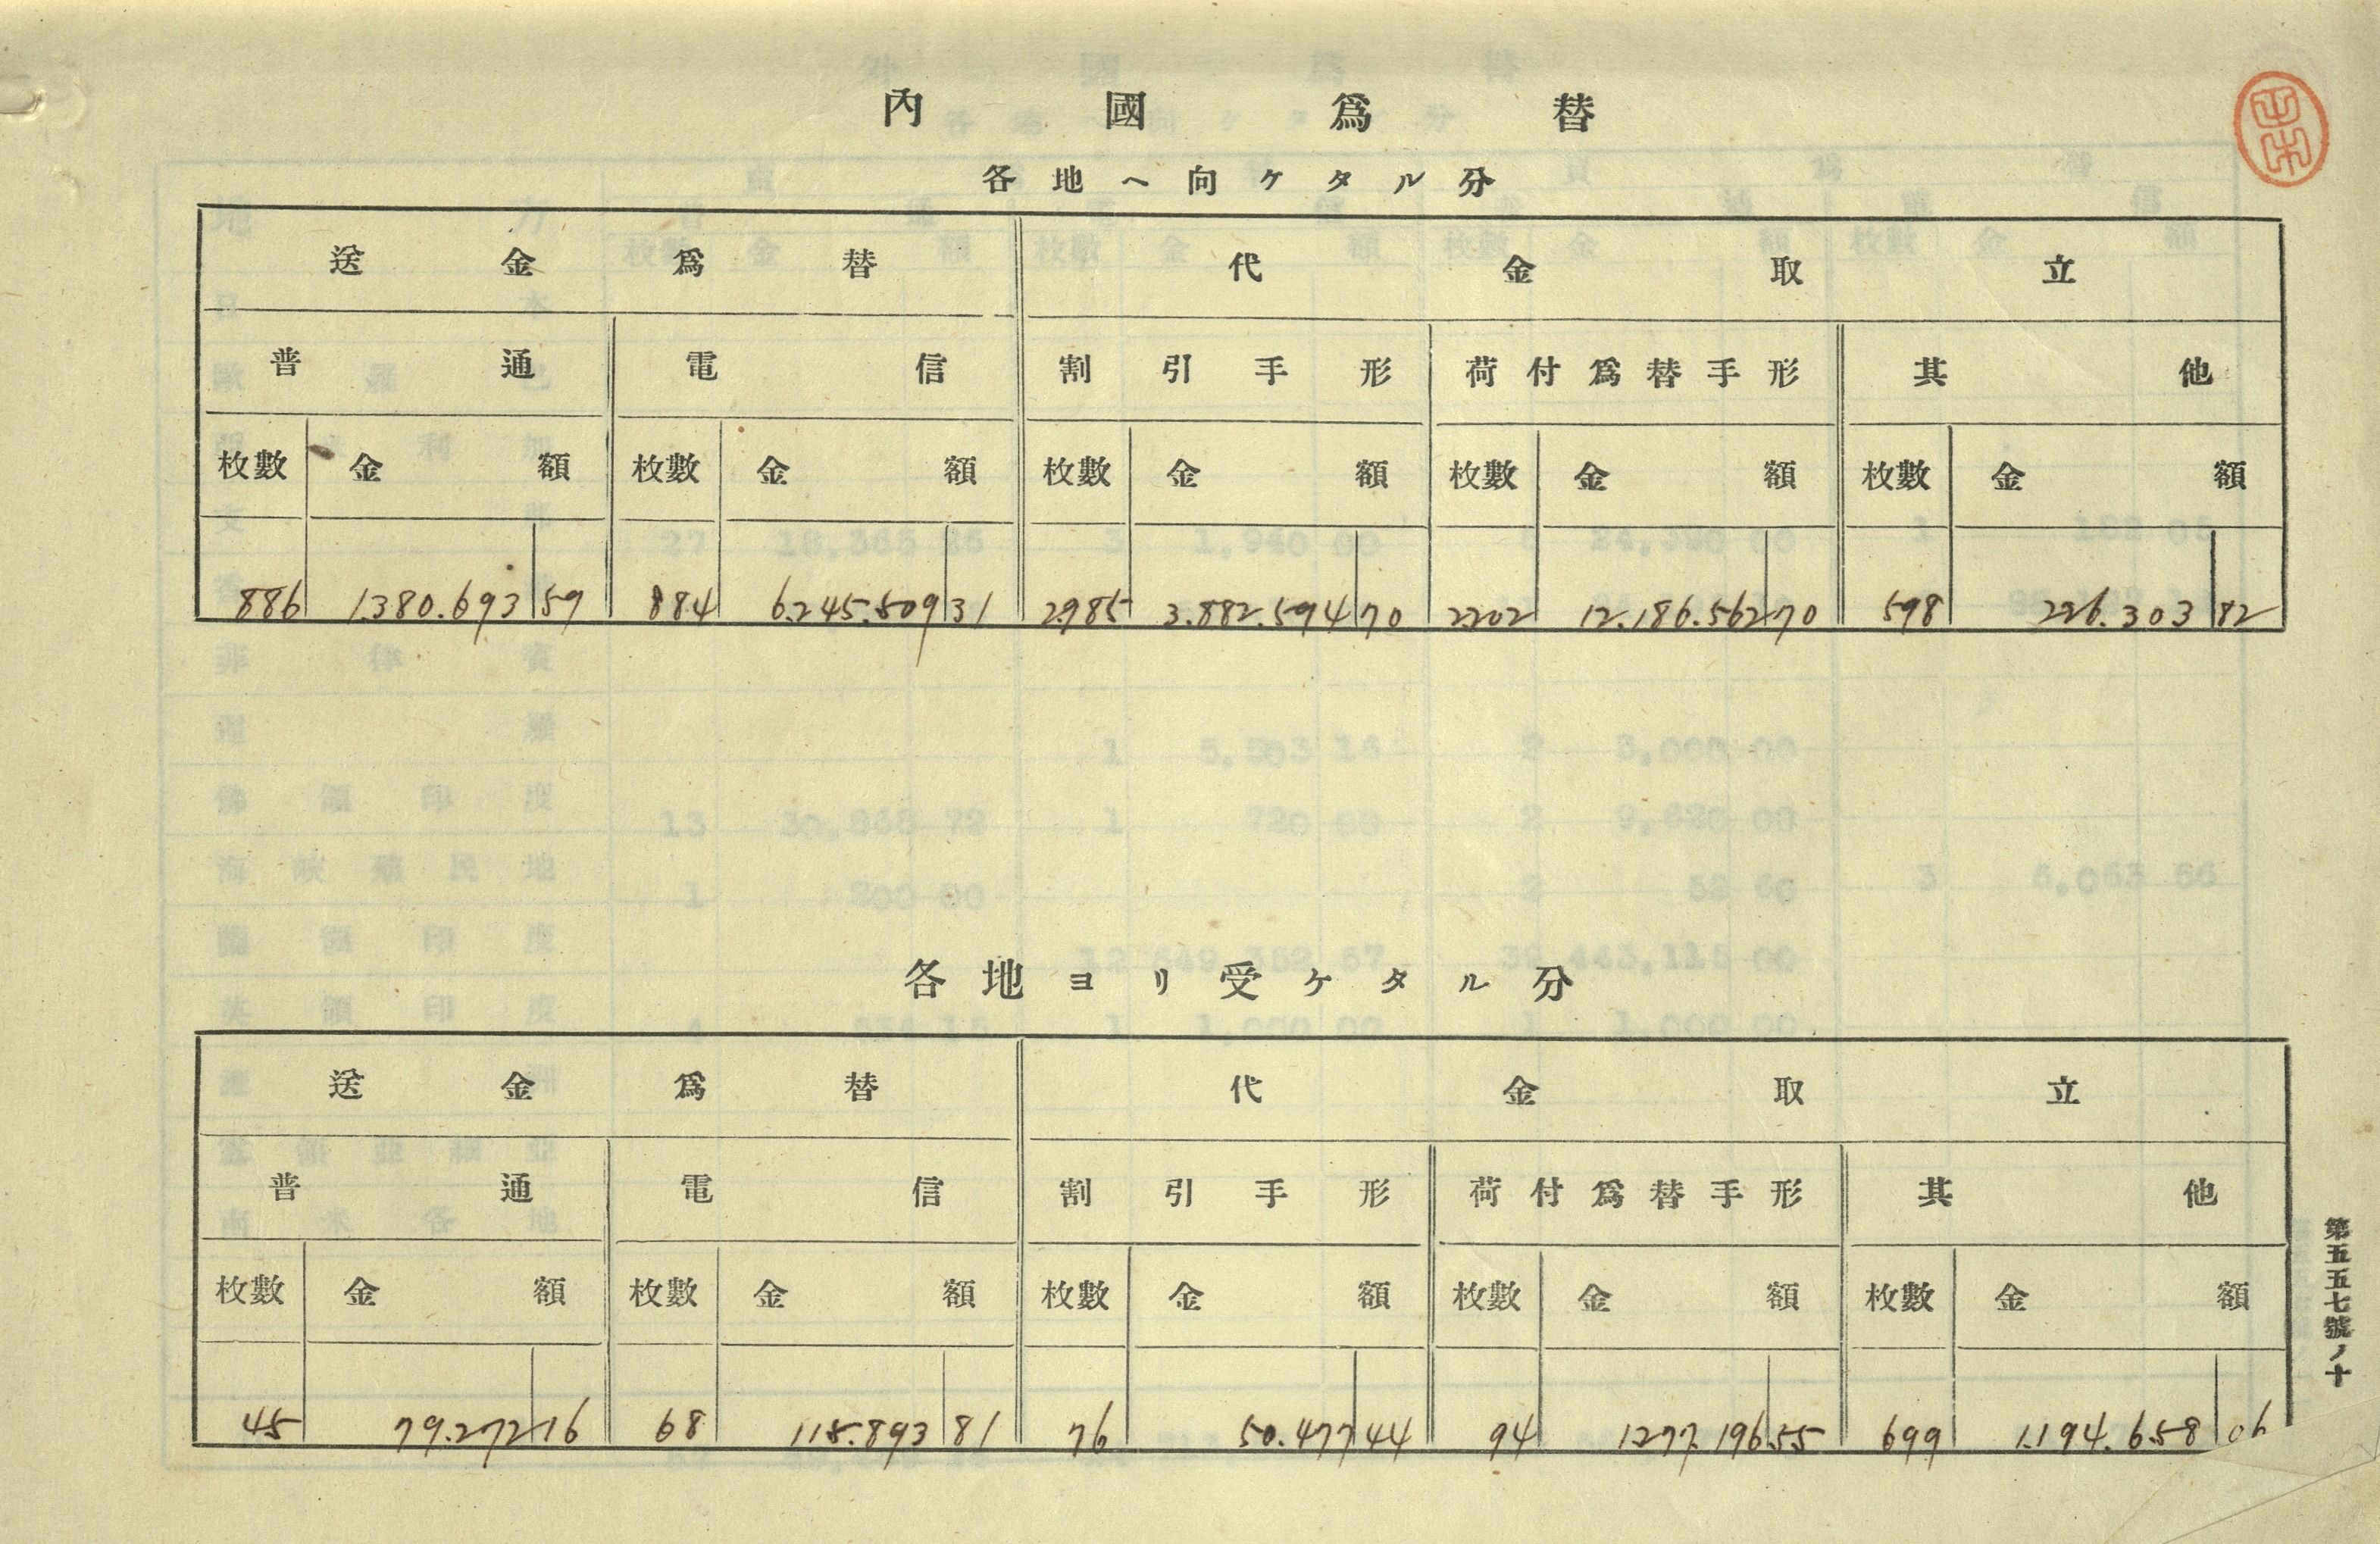 內國爲替
各地ヘ向ケタル分
送金爲替 代金取立
普通 電信 割引手形 荷付爲替手形 其他
枚數 金額 枚數 金額 枚數 金額 枚數 金額 枚數 金額
886 1.380.693 59 884 6.245.509 31 2.985 3.882.594 70 2.202 12.186.562 70 598 226.303 82
各地ヨリ受ケタル分
送金爲替 代金取立
普通 電信 割引手形 荷付爲替手形 其他
枚數 金額 枚數 金額 枚數 金額 枚數 金額 枚數 金額
45 79.272 16 68 115.893 81 76 50.477 44 94 1.277.196 55 699 1.194.658 06
第五五七號ノ十